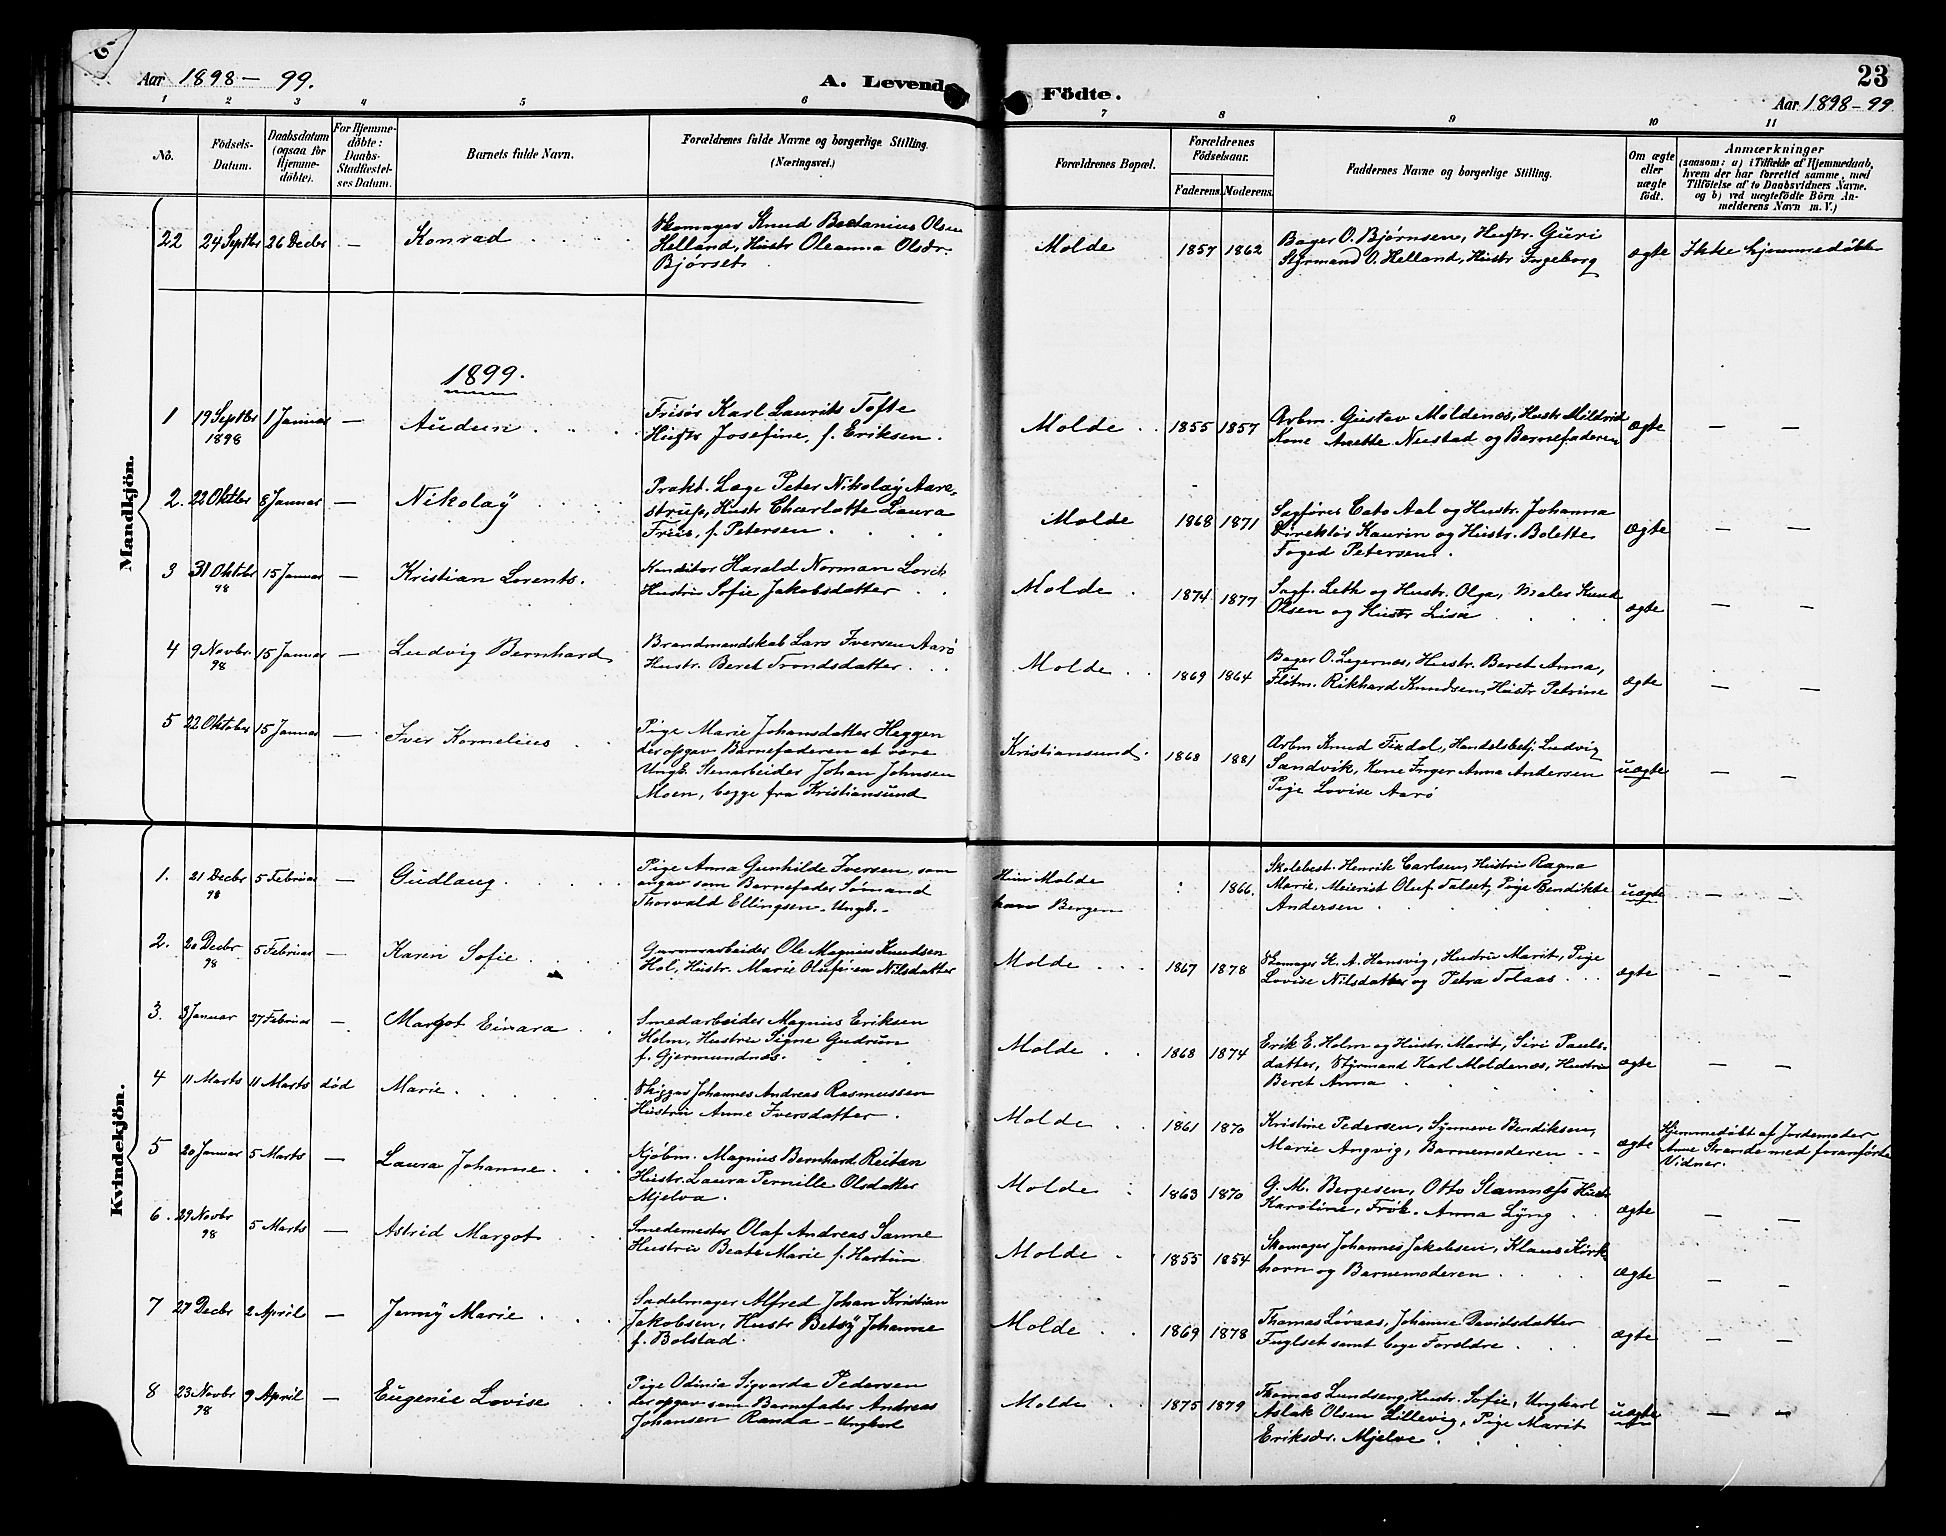 Aar 1898 – 99.
A. Levende
Födte.
23
Aar 1898 – 99
1 2 3 4 5 6 7 8 9 10 11
No.
Födsels-Datum.
Daabsdatum (ogsaa for Hjemme-döbte).
For Hjemme-döbte: Daabs-Stadfæstel-ses Datum.
Barnets fulde Navn.
Forældrenes fulde Navne og borgerlige Stilling.
(Næringsvei.)
Forældrenes Bopæl.
Forældrenes Födselsaar.
Faderens. Moderens.
Faddernes Navne og borgerlige Stilling.
Om ægte eller uægte födt.
Anmærkninger
(saasom: a) i Tilfælde af Hjemmedaab,
hvem der har forrettet samme, med
Tilföielse af to Daabsvidners Navne.
og b) ved uægtefödte Börn An-
melderens Navn m. V.)
Mandkjön.
22 24 Septbr 26 Decbr – Konrad
Skomager Knud Betanius Olsen
Helland, Hustr Oleanna Olsdr.
Bjørset
Molde 1857 1862
Bager O. Bjørnsen, Hustr. Guri
Styrmand O. Helland, Hustr Ingeborg
ægte Ikke hjemmedøbt
1899.
1 19 Septbr 1898 1 Januar – Audun
Frisør Karl Laurits Tofte
Hustr Josefine, f. Eriksen.
Molde 1855 1857
Arbm. Gustav Moldenæs, Hustr Mildrid
Kone Anette Neustad og Barnefaderen
ægte – –
2. 22 Oktbr 8 Januar – Nikolaÿ
Prakt. Læge Peter Nikolaÿ Aare-
strup, Hustr Charlotte Laura
Friis, f. Petersen
Molde 1868 1871
Sagfører Cato Aal og Hustr. Johanna
Direktør Kaurin og Hustr. Bolette
Foged Petersen.
ægte – –
3 31 Oktober 98 15 Januar – Kristian Lorents.
Konditor Harald Norman Lorch
Hustru Sofie Jakobsdatter
Molde 1874 1877
Sagf. Leth og Hustr. Olga, Maler Knud
Olsen og Hustr Lisa
ægte – –
4 9 Novbr. 98 15 Januar – Ludvig Bernhard
Brandmandskab Lars Iversen Aarø
Hustr. Beret Trondsdatter
Molde 1869 1864
Bager O. Legernes, Hustr. Beret Anna,
Fløtm. Rikhard Knudsen, Hustr Petrine
ægte – –
5 22 Oktober 15 Januar – Iver Kornelius
Pige Marie Johansdatter Heggen
der opgav Barnefaderen at være
Ungk. Stenarbeider Johan Johnsen
Moen, begge fra Kristiansund
Kristiansund. 1868 1881
Arbm Knud Fixdal, Handelsbetj. Ludvig
Sandvik, Kone Inger Anna Andersen
Pige Lovise Aarø
uægte – –
Kvindekjön.
1. 21 Decbr 98 5 Februar – Gudlaug
Pige Anna Gunhilde Iversen, som
angav som Barnefader Sømand
Thorvald Ellingsen – Ungk. –
Hun Molde
han Bergen
1866.
Skolebest. Henrik Carlsen, Hustru Ragna
Marie, Meierist Oluf Talset, Pige Bendikte
Andersen
uægte – –
2. 20 Decbr 98 5 Februar – Karen Sofie
Garnarbeider Ole Magnus Knudsen
Hol, Hustr. Marie Olufine Nilsdatter
Molde 1867 1878
Skomager K. A. Hansvig, Hustru Marit, Pige
Lovise Nilsdatter og Petra Tolaas
ægte – –
3. 3 Januar 27 Februar – Margot Einara
Smedarbeider Magnus Eriksen
Holm, Hustru Signe Gudrun
f. Gjermundnæs.
Molde 1868 1874
Erik E. Holm og Hustr. Marit, Siri Pauls-
datter, Styrmand Karl Moldenæs, Hustru
Beret Anna
ægte – –
4 11 Marts 11 Marts død Marie
Skigger Johannes Andreas Rasmussen
Hustru Anne Iversdatter
Molde 1861 1870
Kristine Pedersen, Synneve Bendiksen,
Marie Angvig, Barnemoderen
ægte
Hjemmedøbt af Jordemoder
Anne Strande med foranførte
Vidner.
5 20 Januar 5 Marts – Laura Johanne
Kjøbm. Magnus Bernhard Reitan
Hustr. Laura Pernille Olsdatter
Mjelva.
Molde 1863 1870
G. M. Bergesen, Otto Stamnæss Hustr
Karoline, Frøk. Anna Lyng
ægte – –
6. 29 Novbr 98 5 Marts – Astrid Margot
Smedemester Olaf Andreas Sanne
Hustru Beate Marie f. Hartun
Molde 1855 1854
Skomager Johannes Jakobsen, Klaus Kirk-
horn og Barnemoderen
ægte – –
7 27 Decbr 2 April – Jenny Marie
Sadelmager Alfred Johan Kristian
Jakobsen, Hustr Betsÿ Johanne
f. Bolstad.
Molde 1869 1878
Thomas Løvaas, Johanne Davidsdatter
Fuglset samt bege Forældre
ægte – –
8 23 Novbr 98 9 April – Eugenie Lovise
Pige Odinia Sigvarda Pedersen
der opgav som Barnefader Andreas
Johansen Randa – Ungkarl
Molde 1875 1879
Thomas Lundseng, Hustr. Sofie, Ungkarl
Aslak Olsen Lillevig, Pige Marit
Eriksdr. Mjelve
uægte – –